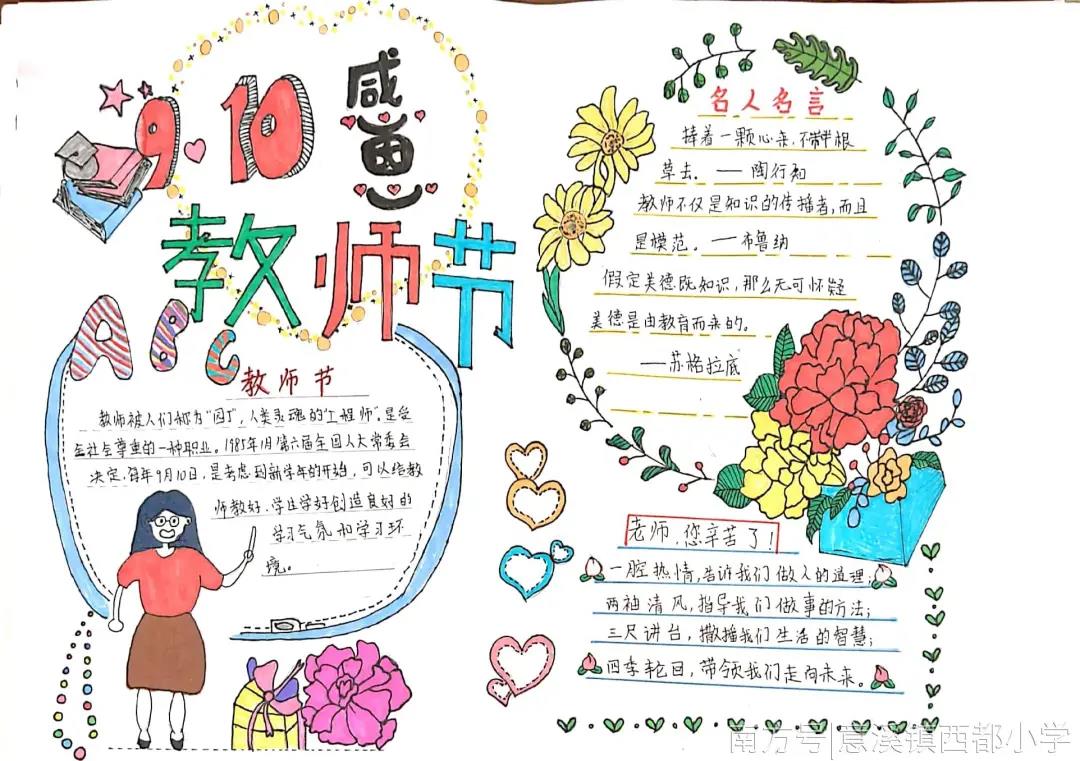 9.10
感恩
教师节
ABC
教师节
教师被人们称为“园丁”,人类灵魂的“工程师”.是受
全社会尊重的一种职业。1985年1月第六届全国人大常委会
决定,每年9月10日,是考虑到新学年的开始,可以给教
师教好、学生学好创造良好的
学习气氛和学习环
境。
名人名言
捧着一颗心来,不带半根
草去。—陶行知
教师不仅是知识的传播者,而且
是模范。—布鲁纳
假定美德既知识,那么无可怀疑
美德是由教育而来的。
—苏格拉底
老师,您辛苦了!
一腔热情,告诉我们做人的道理;
两袖清风,指导我们做事的方法;
三尺讲台,撒播我们生活的智慧;
四季轮回,带领我们走向未来。
南方号|意溪镇西都小学